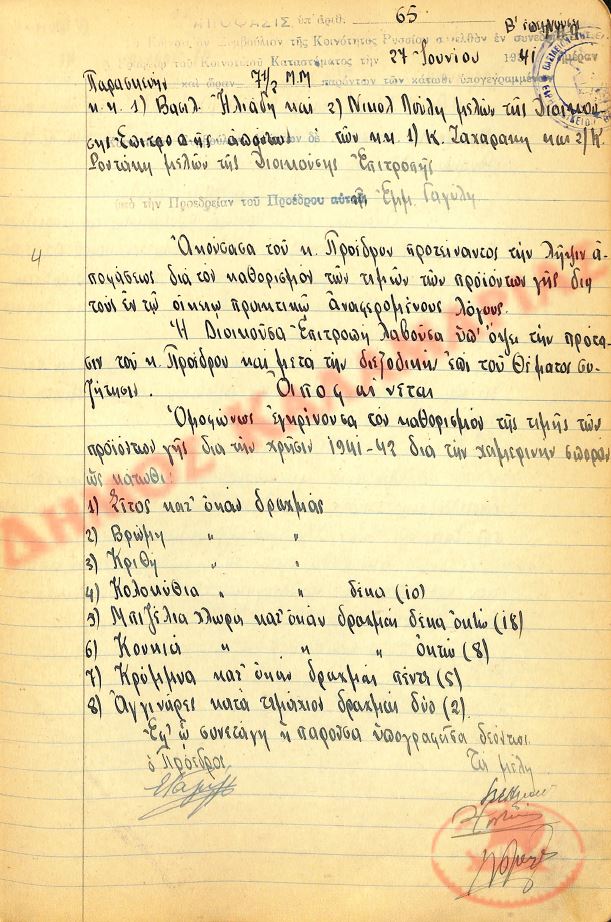 ΑΠΟΦΑΣΙΣ ὑπ' ἀριθ. 65
Συμβούλιον τῆς Κοινότητος Ρυσίου συνελθὸν ἐν συνεδριάσει
τοῦ Κοινοτικοῦ Καταστήματος τὴν 27 Ἰουνίου 1941 ἡμέραν
Παρασκευὴν καὶ ὥραν 7 1/2 Μ.Μ παρόντων τῶν κάτωθι ὑπογεγραμμένων
κ.κ. 1) Βασιλ. Ἠλιάδη καὶ 2) Νικολ Πούλη μελῶν τῆς Διοικού
σης Ἐπιτροπῆς ἀπόντων δὲ τῶν κ.κ. 1) Κ. Ζαχαράκη καὶ 2) Κ.
Ροντάκη μελῶν τῆς Διοικούσης Ἐπιτροπῆς
ὑπὸ τὴν Προεδρείαν τοῦ Προέδρου αὐτῆς Ἐμμ. Γαγύλη
4
Ἀκούσασα τοῦ κ. Προέδρου προτείναντος τὴν λῆψιν ἀ-
ποφάσεως διὰ τὸν καθορισμὸν τῶν τιμῶν τῶν προϊόντων γῆς διὰ
τοὺς ἐν τῷ οἰκείῳ πρακτικῷ ἀναφερομένους λόγους.
Ἡ Διοικοῦσα Ἐπιτροπὴ λαβοῦσα ὑπ' ὄψει τὴν πρότα-
σιν τοῦ κ. Προέδρου καὶ μετὰ τὴν διεξοδικὴν ἐπὶ τοῦ θέματος συ-
ζήτησιν. Ὁποφαίνεται
Ὁμοφώνως ἐγκρίνουσα τὸν καθορισμὸν τῆς τιμῆς τῶν
προϊόντων γῆς διὰ τὴν χρῆσιν 1941-42 διὰ τὴν χειμερινὴν σπορὰν
ὡς κάτωθι:
1) Σῖτος κατ' ὀκᾶν δραχμὰς
2) Βρώμη " "
3) Κριθὴ " "
4) Κολοκύθια " " δέκα (10)
5) Μπιζέλια χλωρὰ κατ' ὀκᾶν δραχμαὶ δέκα ὀκτὼ (18)
6) Κουκιὰ " " " ὀκτὼ (8)
7) Κρόμμυα κατ' ὀκᾶν δραχμαὶ πέντε (5)
8) Ἀγγινάρες κατὰ τεμάχιον δραχμαὶ δύο (2)
Ἐφ' ᾧ συνετάγη ἡ παροῦσα ὑπογραφεῖσα δεόντως.
ὁ Πρόεδρος Τὰ μέλη
ΔΗΜΟΣ ΚΑΛΑΜΑΡΙΑΣ